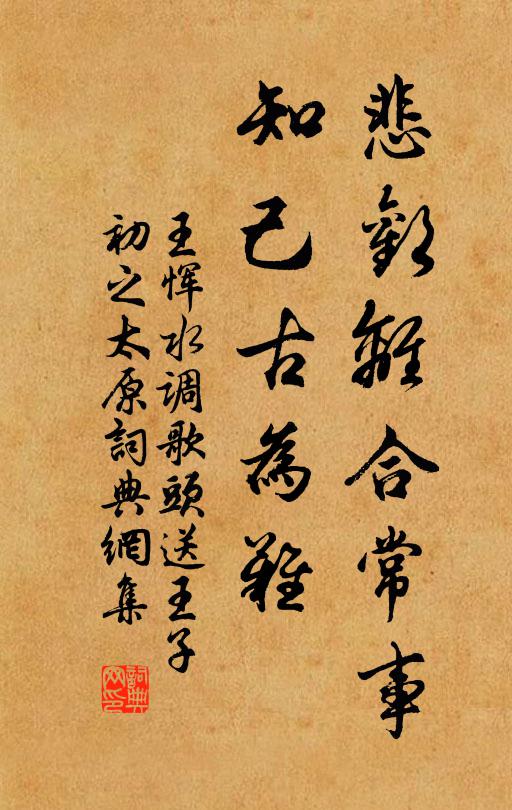 悲歡離合常事
知己古為難
王惲水调歌頭送王子
初之太原詞典網集
詞典网印